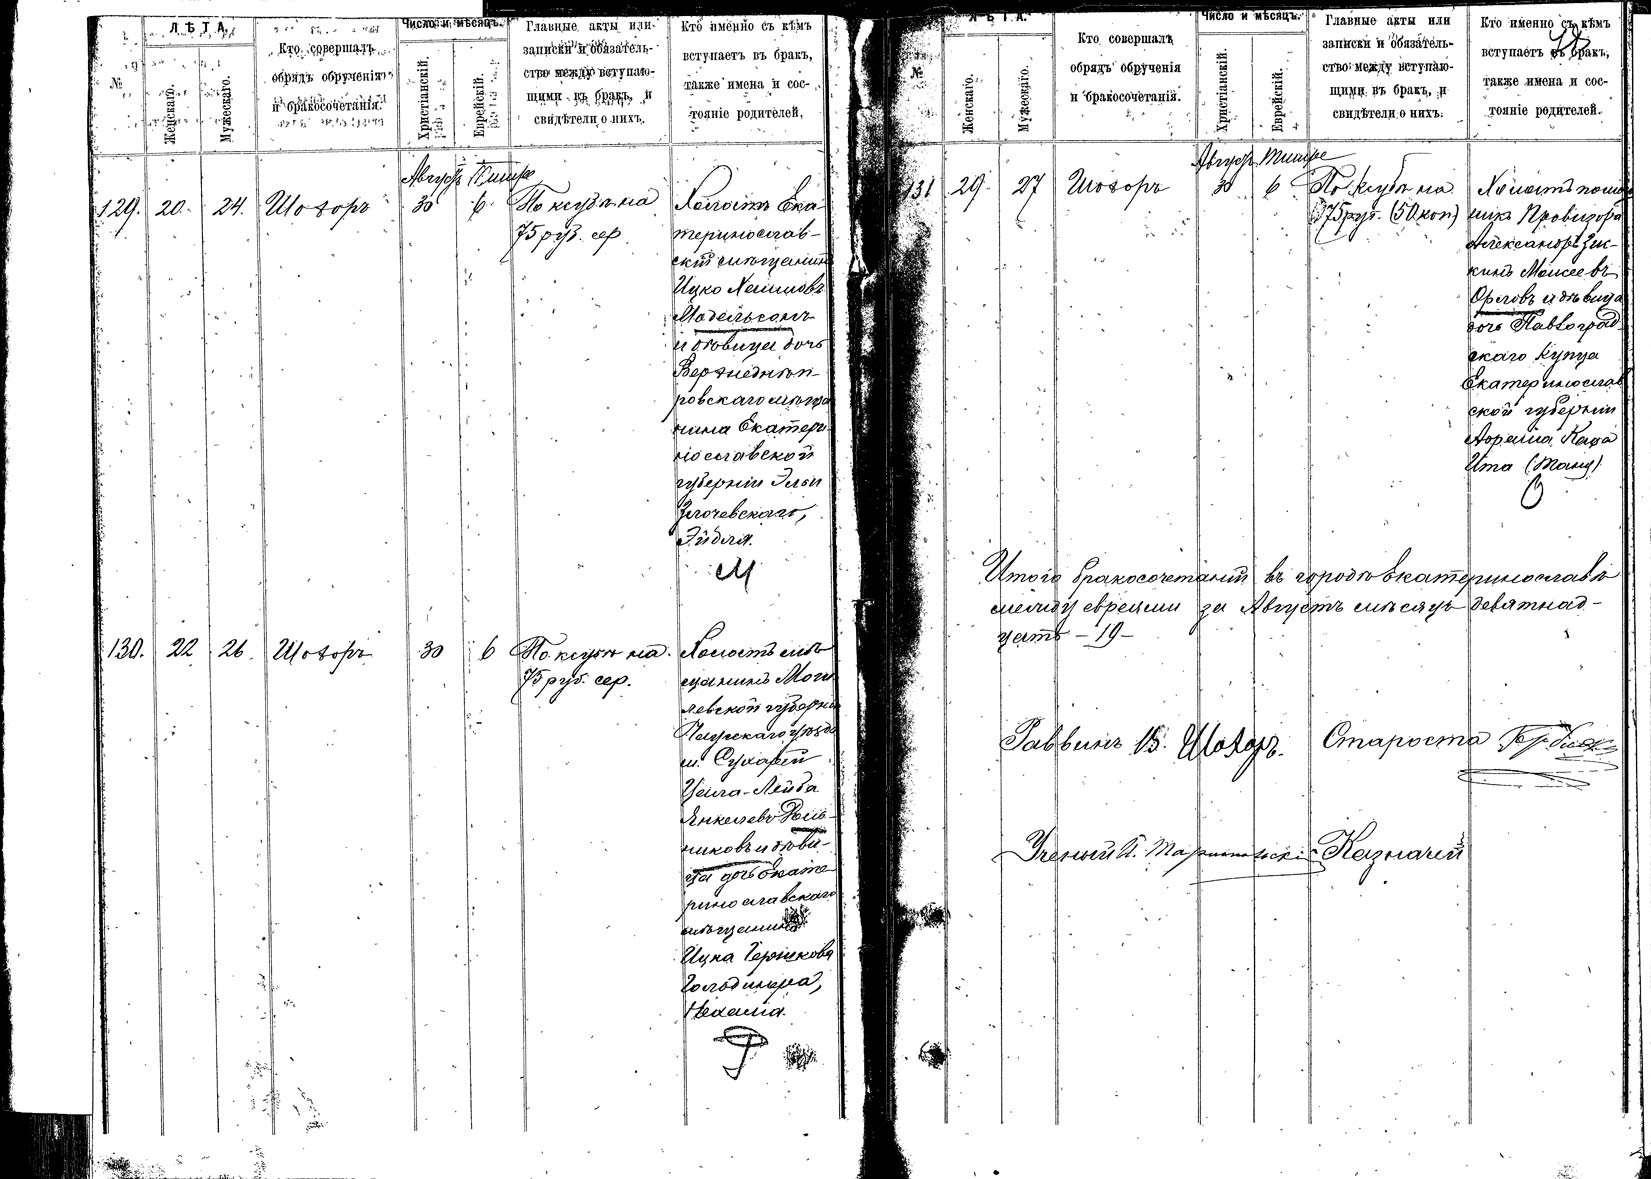 ЛѢТА.
№
Женскаго.
Мужескаго.
Кто совершалъ
обрядъ обрученія
и бракосочетанія.
Число и мѣсяцъ.
Христіанскій.
Еврейскій.
Главные акты или
записки и обязатель-
ство между вступаю-
щими въ бракъ, и
свидѣтели о нихъ.
Кто именно съ кѣмъ
вступаетъ въ бракъ,
также имена и сос-
тояніе родителей.
Августъ Тишре
129. 20. 24. Шохоръ 30 6
По ксубѣ на
75 руб. сер.
Холостъ Ека-
теринослав-
скій мѣщанинъ
Ицко Хаимовъ
и дѣвица дочь
Верхнеднѣп-
ровскаго мѣща
нина Екатери
нославской
губерніи Эліи
Злочевскаго,
Эйдля.
130. 22 26. Шохоръ 30 6
По ксубѣ на
75 руб. сер.
Холостъ мѣ
щанинъ Моги
левской губерніи
Чаусскаго уѣзда
м. Сухарей
Лейба
Янкелевъ
никовъ и дѣви-
ца дочь Екате
ринославскаго
мѣщанина
Ицка Гершкова
Гольдингера,
Нехама.
ЛѢТА.
№
Женскаго.
Мужескаго.
Кто совершалъ
обрядъ обрученія
и бракосочетанія.
Число и мѣсяцъ.
Христіанскій.
Еврейскій.
Главные акты или
записки и обязатель-
ство между вступаю-
щими въ бракъ, и
свидѣтели о нихъ.
Кто именно съ кѣмъ
вступаетъ въ бракъ,
также имена и сос-
тояніе родителей.
Августъ Тишре
131 29. 27 Шохоръ 30 6
По ксубѣ на
75 руб. (50 коп)
Холостъ помощ
никъ Провизора
Александръ Зис-
кинъ Моисеевъ
Орловъ и дѣвица
дочь Павлоград
скаго купца
Екатеринослав
ской губерніи
Аврама Каца
Ита (Таня)
Итого бракосочетаній въ городѣ Екатеринославѣ
между евреями за Августъ мѣсяцъ девятнад-
цать - 19 -
Раввинъ В. Шохоръ. Староста
Ученый Казначей